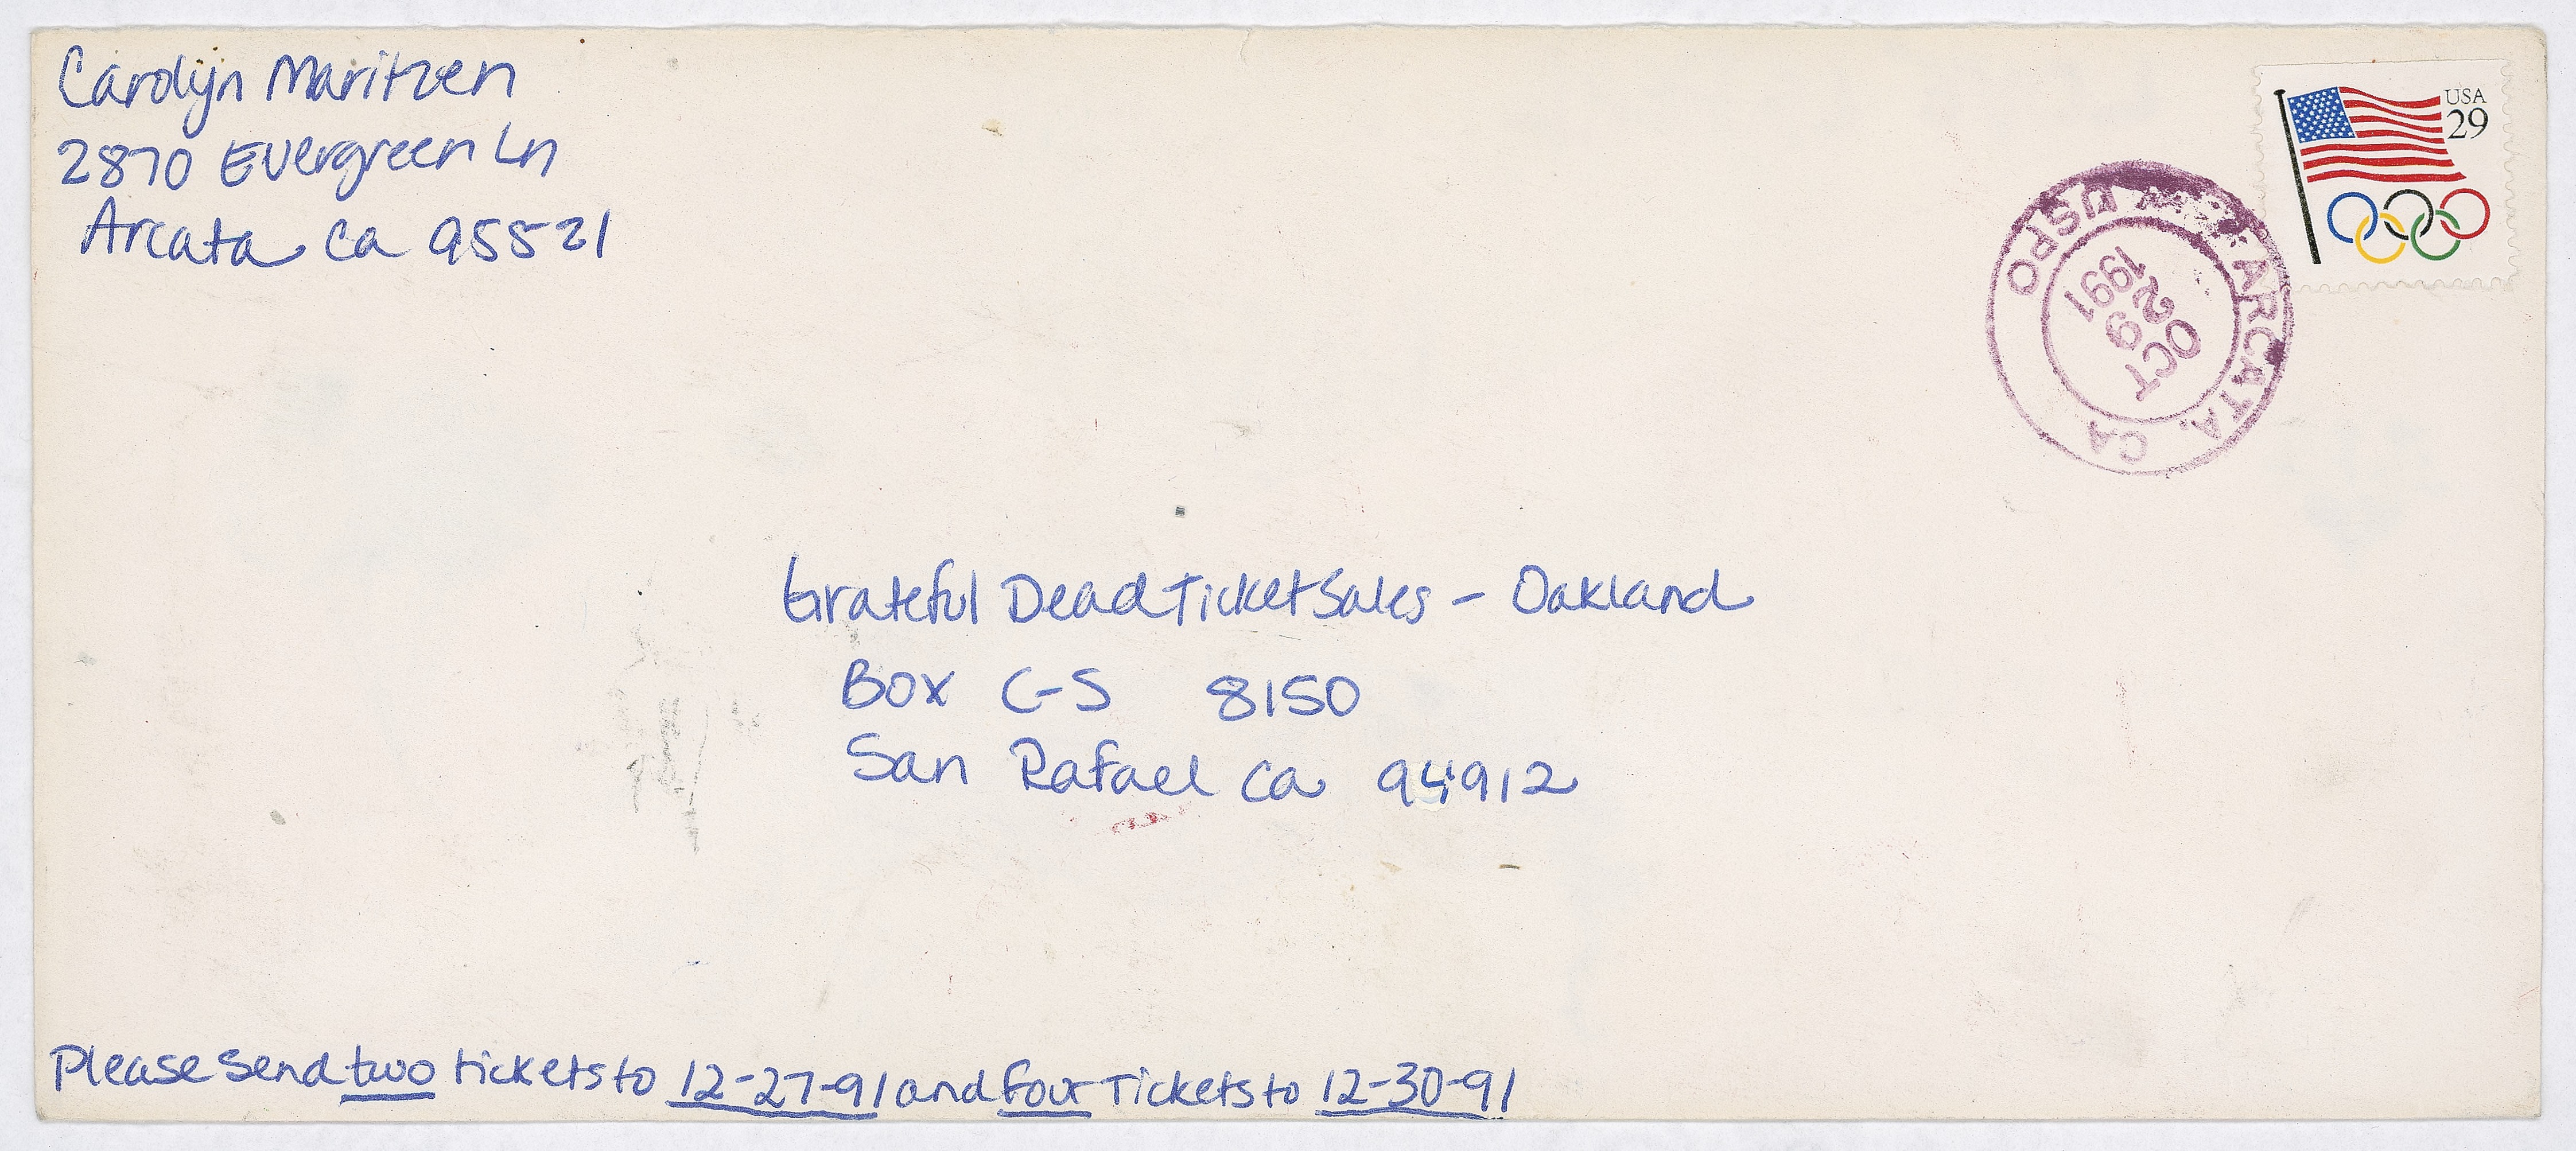 Carolyn Maritzen
2870 Evergreen Ln
Arcata Ca 95521
USA
29
ARCATA, CA
USPO
OCT
29
1991
Grateful Dead Ticket Sales - Oakland
Box C-S 8150
San Rafael Ca 94912
Please send two tickets to 12-27-91 and four Tickets to 12-30-91